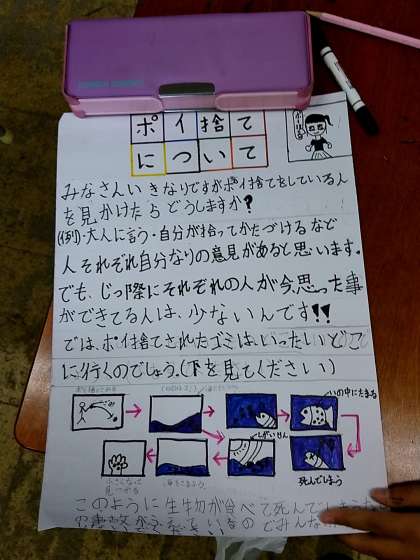 ポイ捨て
について
みなさんいきなりですがポイ捨てをしている人
を見かけたらどうしますか?
(例)・大人に言う・自分が拾ってかたづけるなど
人それぞれ自分なりの意見があると思います。
でも、じっ際にそれぞれの人が今、思った事
ができてる人は、少ないんです!!
では、ポイ捨てされたゴミは、いったいどこ
に行くのでしょう。(下を見てください)
いの中にたまる
しがいせん
死んでしまう
このように生物が食べて死んでしまうなど